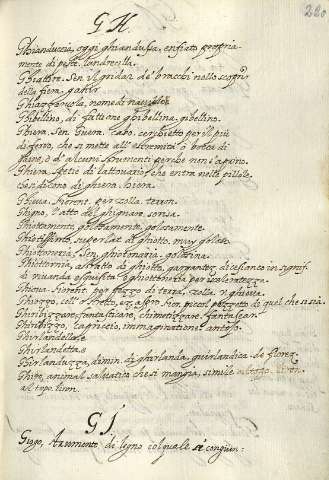 220
G H.
Ghianduccia, oggi ghiandussa, enfiato propria-
mente di peste. landrecilla.
Ghiattire. Sen. il gridar de' bracchi nello scoprir
della fiera. gañir
Ghiazzeruola, nome di
Ghibellino, di fatione ghibellina. gibelino.
Ghiera. Sen. Guera. cabo. cerchietto per il più
di ferro, che si mette all' estremità o bocca di
perche non s'aprino.
Ghiera. spetie di lattovario che entra nelle pillole.
Ghieua. fiorent. per zolla. terron.
Ghigno, l'atto del ghignare. sonrisa.
Ghiotamente golosamente. golosamente.
Ghiotissimo, superlat. di ghiotto, muy goloso
Ghiottoneria. Sen. ghiotornia. golosina.
Ghiottornia, astratto di ghiotto, in signif.
di vivanda esquisita e ghiottoneria per
Ghioua. fiorent. per pezzo di terra, zolla. v. ghieua.
Ghiozzo, coll' o stretto, et z aspri. Sen. piccol pezzetto di quel che si sia.
Ghiribizzare, fantasticare, chimerizzare. fantasear
Ghiribizzo, capriccio, immaginatione. antojo.
Ghirlandella. e
Ghirlandetta. e
Ghirlanduzza, dimin. di ghirlanda, guirlandica de flores
Ghiro, animal salvatico che si mangia, simile al topo. liron.
al topo. liron.
G I.
Giogo, Azumento di legno col quale si congiun: